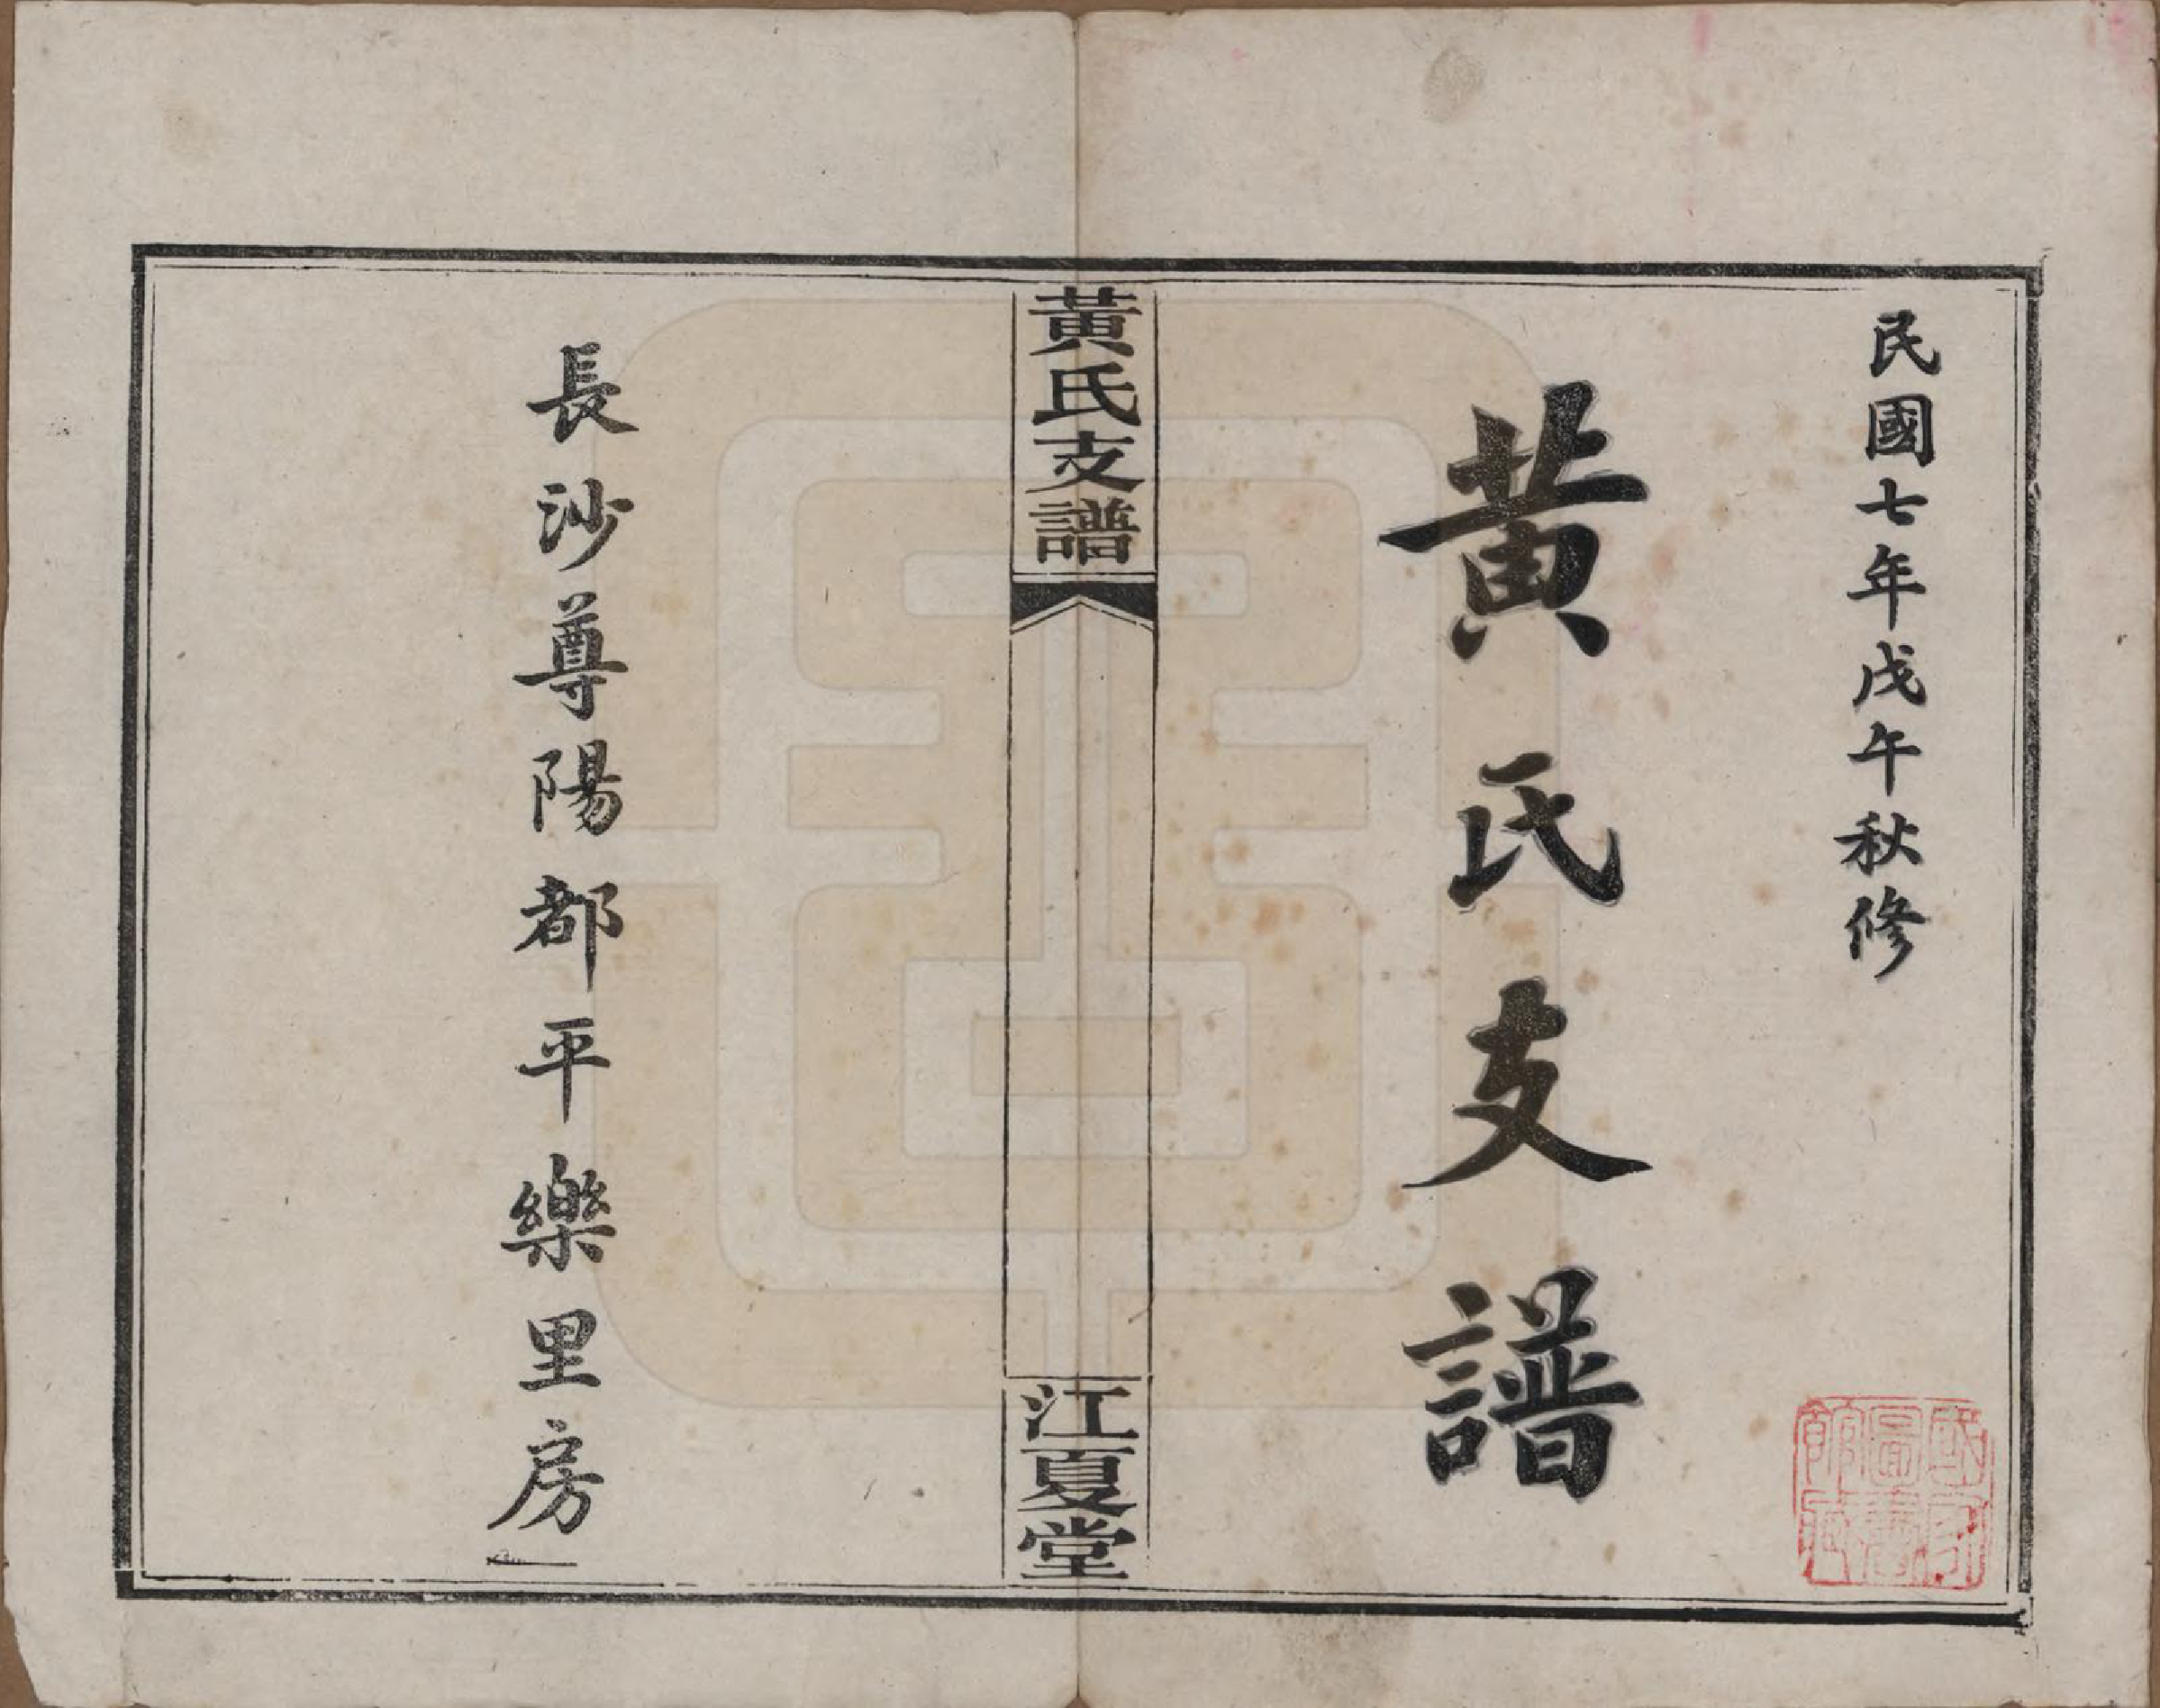 民國七年戊午秋修
黃氏支譜
黃氏支譜
江夏堂
長沙尊陽都平樂里房
國家圖書館藏